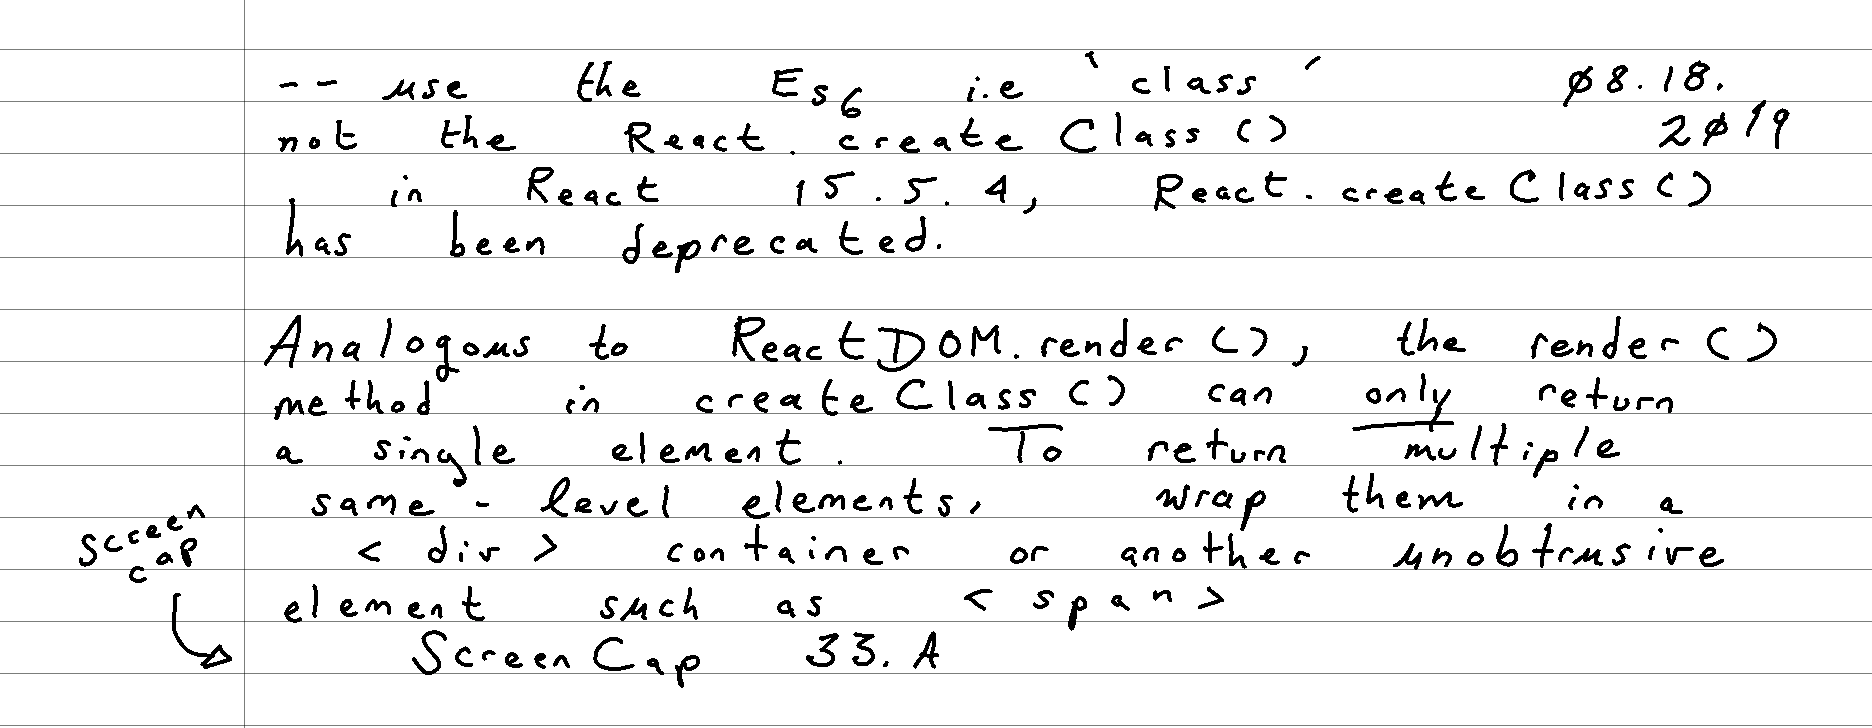 -- use the Es6 i.e `class´ 08.18.
not the React.createClass() 2019
, in React 15.5.4, React.createClass()
has been deprecated.
Analogous to ReactDOM.render(), the render()
method in createClass() can only return
a single element. To return multiple
same-level elements, wrap them in a
screen
cap
<div> container or another unobtrusive
element such as <span>
ScreenCap 33.A